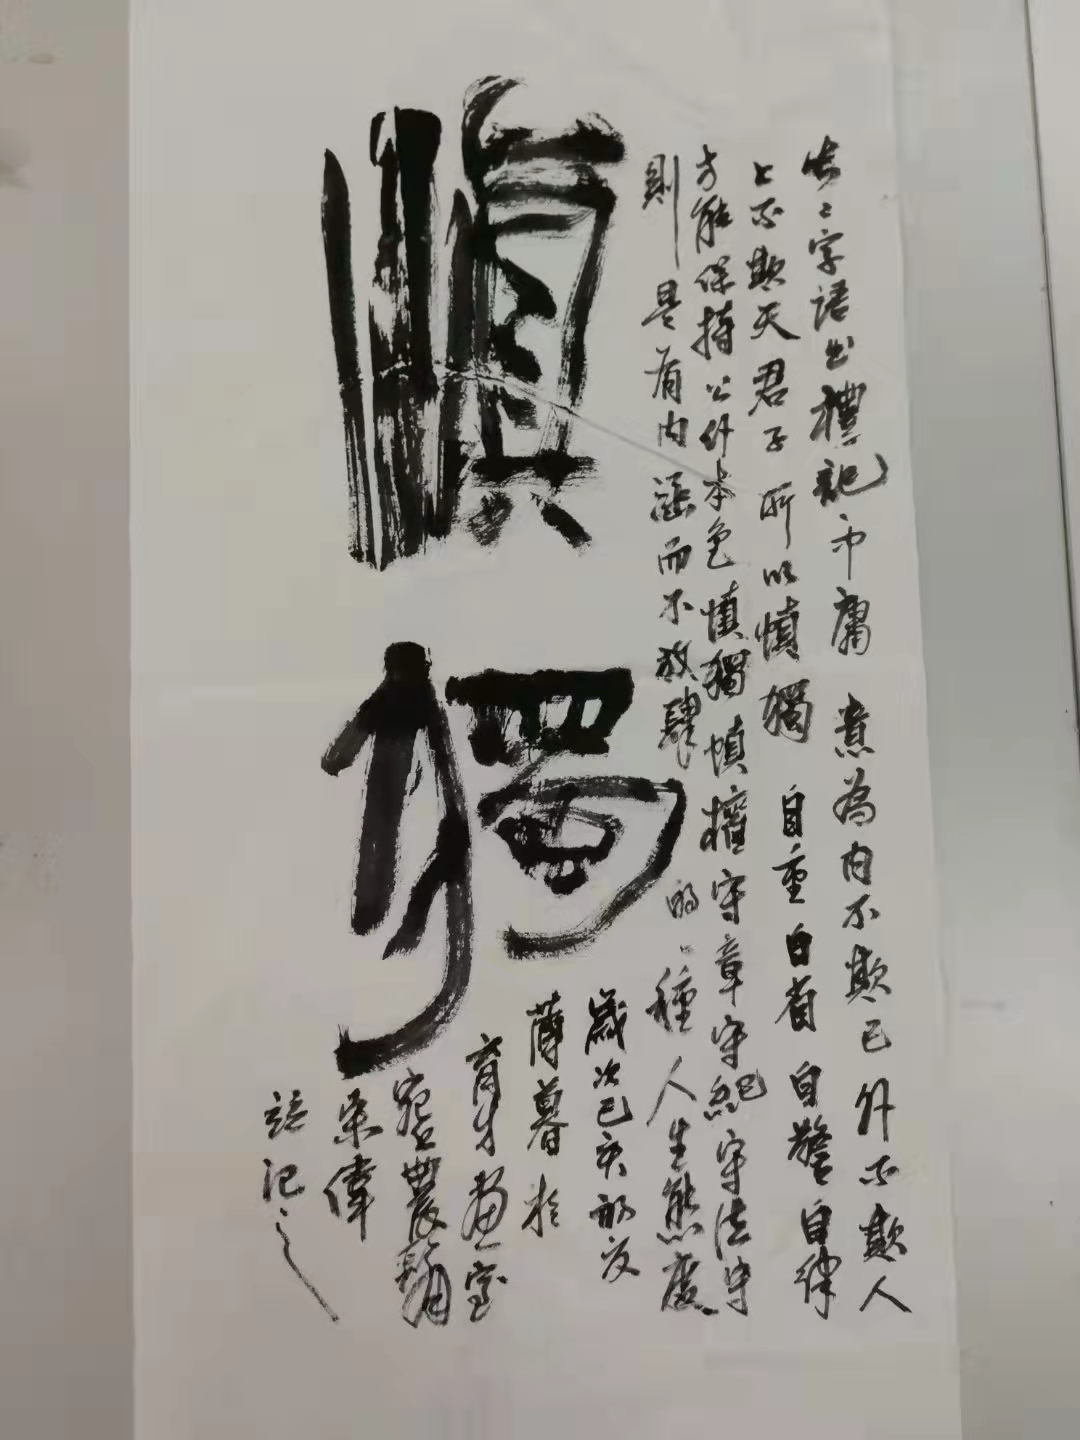 慎獨
此二字語出禮記中庸 意為內不欺己外不欺人
上不欺天君子所以慎獨 自重自省自警自律
方能保持公仆本色慎獨慎權守章守紀守法守
則 是有内涵而不放肆的一種人生態度
歲次己亥初夏
薄暮於
育才画室
農
宋偉
記之